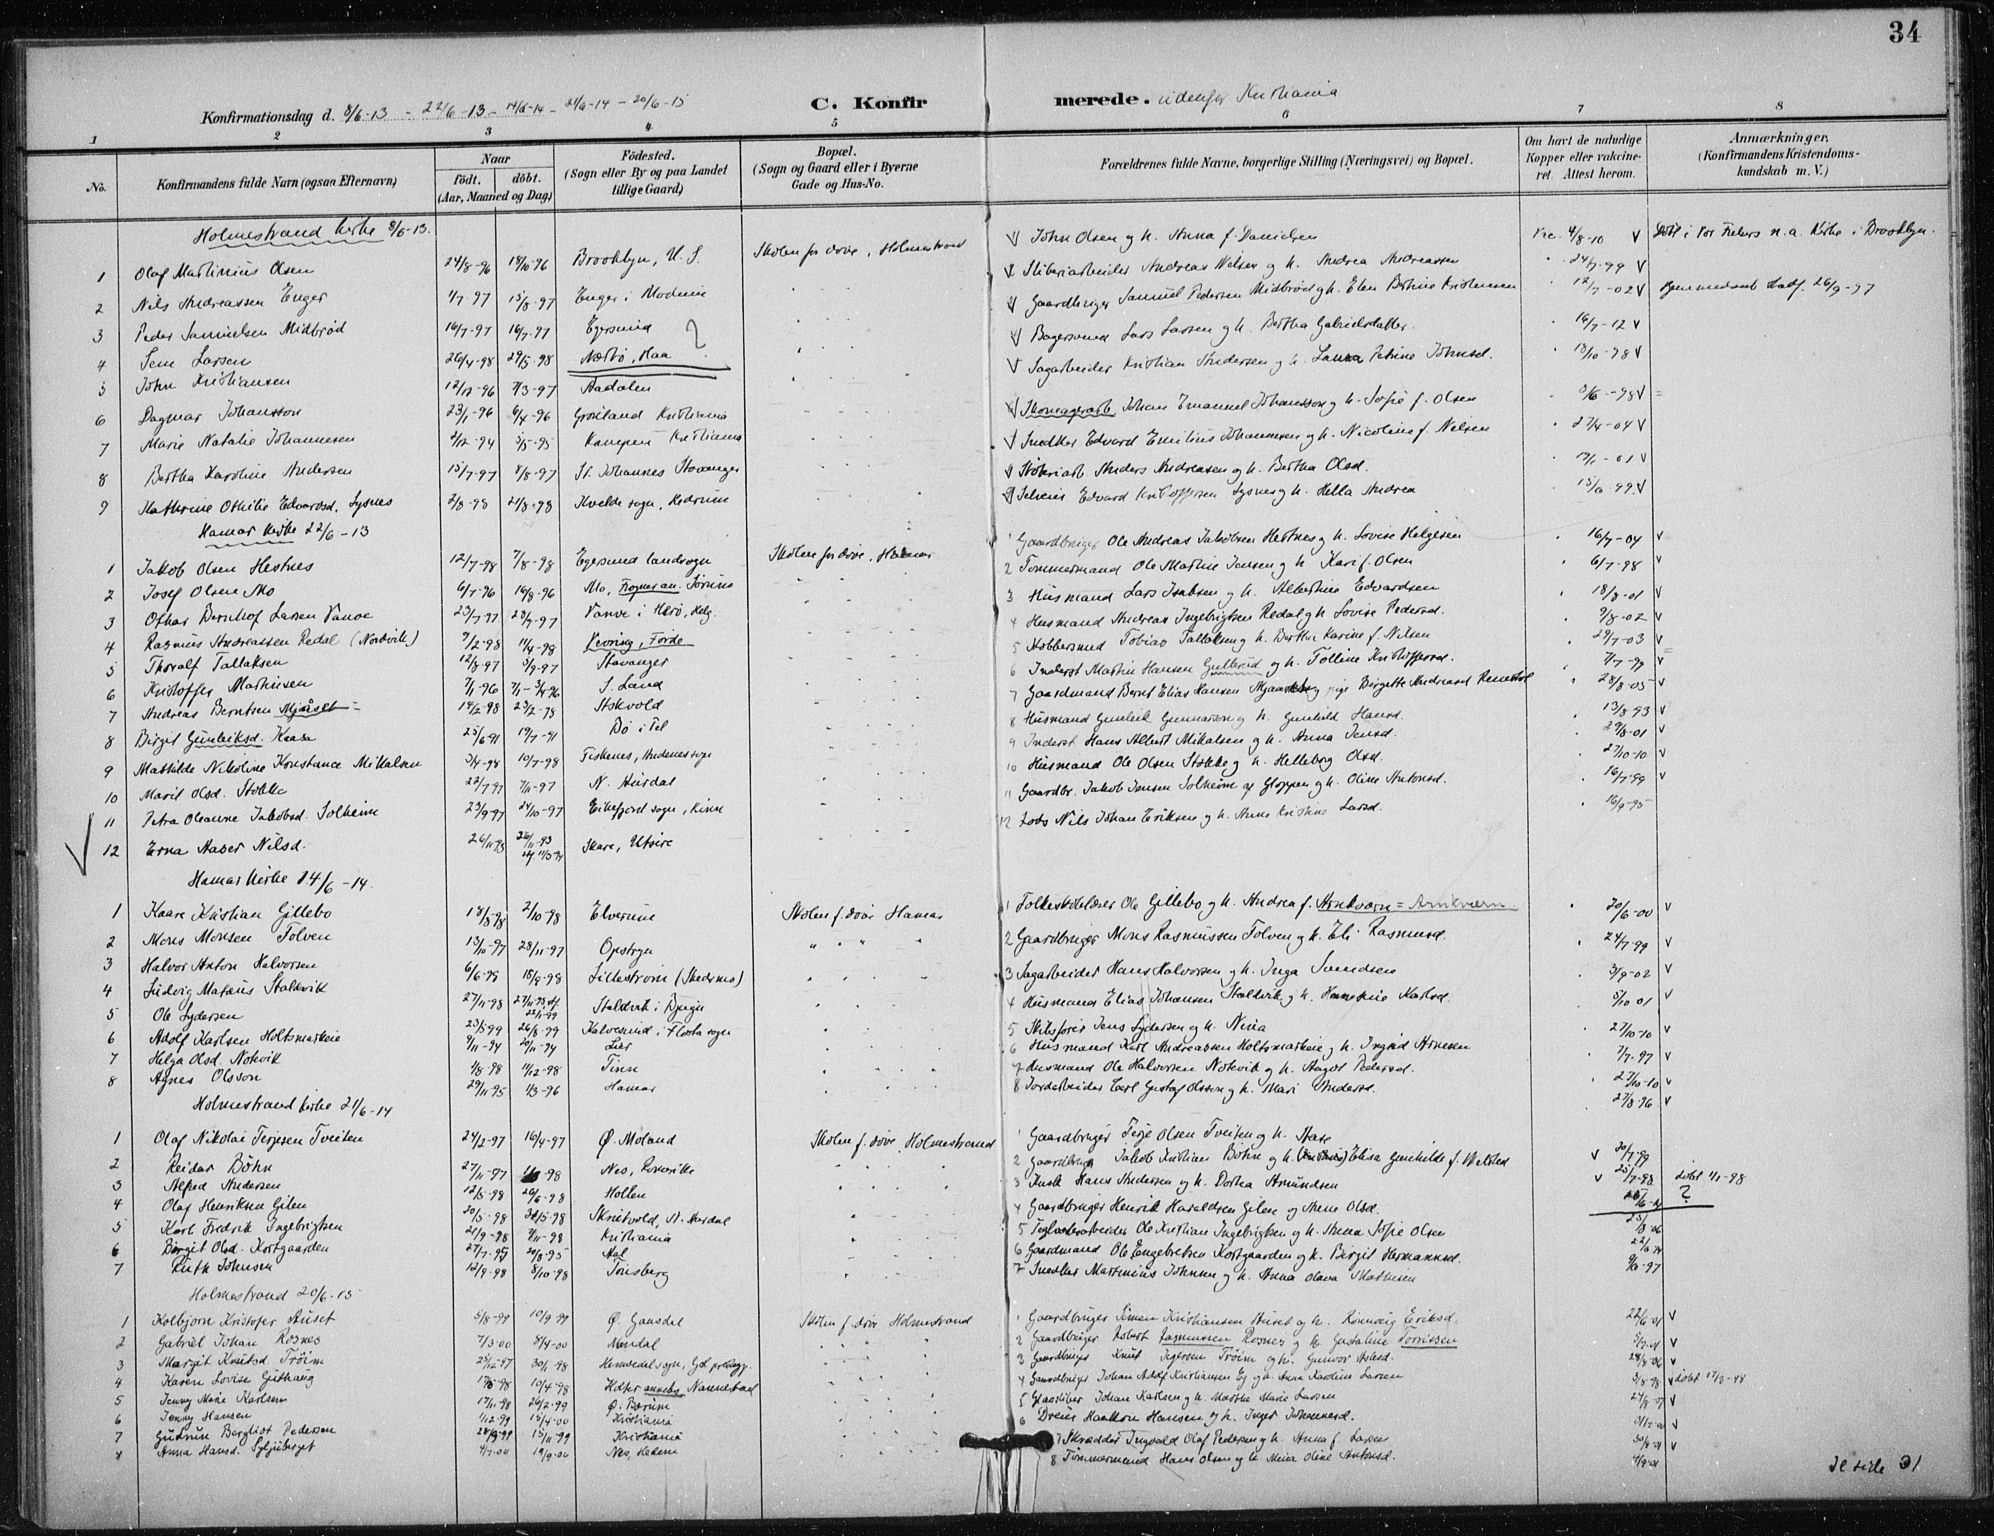 34
Konfirmationsdag d. 8/6-13 - 22/6-13 - 14/6-14 - 21/6-14 - 20/6-15
C. Konfirmerede. udenfor Kristiania
1 2 3 4 5 6 7 8
No.
Konfirmandens fulde Navn (ogsaa Efternavn)
Naar
födt. döbt.
(Aar, Maaned og Dag)
Födested.
(Sogn eller By og paa Landet
tillige Gaard)
Bopæl.
(Sogn og Gaard eller i Byerne
Gade og Hus-No.
Forældrenes fulde Navne, borgerlige Stilling (Næringsvei) og Bopæl.
Om havt de naturlige
Kopper eller vakcine-
ret. Attest herom.
Anmærkninger.
(Konfirmandens Kristendoms-
kundskab m. V.)
Holmestrand kirke 8/6-13.
1 Olaf Martinius Olsen 24/8-96 18/10-96 Brooklyn, U. S. Skolen for döve, Holmestrand John Olsen og h. Anna f. Danielsen Vac. 4/8-10 V
2 Nils Andreassen Enger 1/7-97 15/8-97 Enger i Modum Sliberiarbeider Andreas Nilsen og h. Andrea Andreassen 24/7-99 V
3 Peder Samuelsen Midbrød 16/7-97 16/7-97 Egersund Gaardbruger Samuel Pedersen Midbrød og h. Elen Bertine Kristensen 12/7-02 V Hjemmedøbt stadf. 26/9-97
4 Sem Larsen 26/4-98 29/5-98 Nærbø, Haa ? Bagersvend Lars Larsen og h. Bertha Gabrielsdatter. 16/7-12 V
5 John Kristiansen 12/12-96 7/3-97 Aadalen Sagarbeider Kristian Andersen og h. Laura Petrine Johnsd. 18/10-98 V
6 Dagmar Johansson 23/1-96 6/4-96 Grønland Kristiania Skomagerarb. Johan Emanuel Johansson og h. Sofie f. Olsen 3/6-98 V
7 Marie Natalie Johannesen 2/12-94 5/5-95 Kampen Kristiania Snedker Edvard Emilius Johannesen og h. Nicoline f. Nilsen 27/4-04 V
8 Bertha Karoline Andersen 15/7-97 8/8-97 St. Johannes Stavanger Anders Andreasen og h. Bertha Olsd. 13/1-01 V
9 Kathrine Othilie Edvardsd. Sysnes 2/8-98 21/8-98 Kvelde sogn, Hedrum Edvard Kristoffersen Sysnes og h. Hella Andrea 15/6-99 V
Hamar kirke 22/6-13
1 Jakob Olsen Hestnes 12/7-98 7/8-98 Egersund landsogn Skolen for döve, Hamar 1 Gaardbruger Ole Andreas Jakobsen Hestnes og h. Lovise Helgesen 16/7-04 V
2 Josef Olsen Mo 6/7-96 16/8-96 Mo, Sørum 2 Tømmermand Ole Martin Jensen og h. Kari f. Olsen 6/7-98 V
3 Othar Bernhof Larsen Vanve 23/7-97 23/9-97 Vanve i Herø, Helg. 3 Husmand Lars Isaksen og h. Albertine Edvardsen 18/8-01 V
4 Rasmus Andreassen Redal (Nordvik) 9/2-98 11/4-98 Levring, Førde 4 Husmand Andreas Ingebrigtsen Redal og h. Lovise Pedersd. 9/8-02 V
5 Thoralf Tallaksen 12/8-97 5/9-97 Stavanger 5 Kobbersmed Tobias Tallaksen og h. Bertha Karine f. Nilsen 29/7-03 V
6 Kristoffer Martinsen 7/1-96 7/1-3/4-96 S. Land 6 Inderst Martin Hansen Gullerud og h. Tolline Kristoffersd. 7/7-99 V
7 Andreas Berntsen Mjåset 14/2-98 23/2-98 Askvold 7 Gaardmand Bernt Elias Hansen og pige Birgitte Andreasd. 28/8-05 V
8 Birgit Gunleiksd. Kaasa 25/6-91 19/7-91 Bø i Tel 8 Husmand Gunleik Gunnarson og h. Gunhild Hansd. 13/8-93 V
9 Mathilde Nikoline Konstance Mikalsen 3/4-98 10/7-98 Fiskenes, Andenes sogn 9 Inderst Hans Albert Mikalsen og h. Anna Jensd. 29/8-01 V
10 Marit Olsd. Stokke 22/7-97 7/11-97 N. Aurdal 10 Husmand Ole Olsen Stokke og h. Helleborg Olsd. 27/10-10 V
11 Petra Oleanne Jakobsd. Solheim 23/9-97 24/10-97 Eikefjord sogn, Kinn 11 Gaardbr. Jakob Jensen Solheim af Gloppen og h. Oline Antonsd. 16/7-99 V
12 Erna Aaser Nilsd. 26/11-93 26/11-93 Skare, Utsire 12 Lods Nils Johan Eriksen og h. Anne Kristine Larsd. 16/9-95
Hamar kirke 14/6-14.
1 Kaare Kristian Gillebo 18/8-98 2/10-98 Elverum Skolen f. døve Hamar 1 Folkeskolelærer Ole Gillebo og h. Andrea f. Arnkværn = Arnkværn. 20/6-00 V
2 Mons Monsen Tolven 13/10-97 28/11-97 Opstryn 2 Gaardbruger Mons Rasmussen Tolven og h. Eli Rasmusd. 24/7-99 V
3 Halvor Anton Halvorsen 6/6-98 18/9-98 Lillestrøm (Skedsmo) 3 Sagarbeider Hans Halvorsen og h. Inga Svendsen 3/9-02 V
4 Ludvig Matæus Stalvik 27/11-98 27/11-98 22/1-99 Staldvik i Bjugn 4 Husmand Elias Johansen Staldvik og h. 5/10 01 V
5 Ole Lydersen 23/5 99 26/8-99 Kalvesund i Flosta sogn 5 Skibsfører Jens Lydersen og h. Nina 27/10-10 V
6 Adolf Karlsen Holtsmarkeie 9/11-94 20/11-94 Lier 6 Husmand Karl Andreassen Holtsmarkeie og h. Ingrid Arnesen 7/7-97 V
7 Helga Olsd. Notevik 1/8-98 11/12-98 Tinn 7 Husmand Ole Halvorsen Notevik og h. Aagot Pedersd. 27/10-10 V
8 Agnes Olsson 29/11-95 1/3-96 Hamar 8 Jordarbeider Carl Gustaf Olsson og h. Mari Andersd. 27/8-96 V
Holmestrand kirke 21/6-14
1 Olaf Nikolai Terjesen Tveiten 24/2-97 16/4-97 Ø. Moland Skolen f. døve Holmestrand 1 Gaardbruger Terje Olsen Tveiten og h. Aase V 20/7-99
2 Reidar Bøhn 27/11-97 -98 Nes, Romerike 2 Gaardbruger Jakob Kristian Bøhn og h. Elisa Gunhilde f. Welsted V 25/7-98 døbt 1/1-98
3 Alfred Andersen 12/5-98 26/6-98 Hollen 3 Kusk Hans Andersen og h. Dorthea Amundsen ?
4 Olaf Henriksen Gilen 20/5-98 Skrutvold, N. Aurdal 4 Gaardbruger Henrik Haraldsen Gilen og Anne Olsd.
5 Karl Fredrik Ingebrigtsen 21/9-98 9/11-98 Kristiania 5 Teglverksarbeider Ole Kristian Ingebrigtsen og h. Anna Sofie Olsen
6 Birgit Olsd. Kortgaarden 27/7-95 20/8-95 Aal 6 Gaardmand Ole Engebretsen Kortgaarden og h. Birgit Hermannsd.
7 Ruth Johnsen 12/9-98 8/10-98 Tønsberg 7 Snedker Martinius Johnsen og h. Anna Olava Mathisen 9/6-97
Holmestrand 20/6-15
1 Kolbjørn Kristofer Huset 5/8-99 10/9-99 Ø. Gausdal Skolen f. døve Holmestrand 1 Gaardbruger Simen Kristiansen Huset og h. Rønnaug Eriksd. 22/6-01 V
2 Gabriel Johan Rosnes 7/3-00 8/4-00 Mandal 2 Gaardbruger Robert Rasmussen Rosnes og h. Gustaline Torrissen 5/7-01 V
3 Margit Knutsd. Trøim 25/12-97 30/1-98 Hemsedal sogn, Gol prestegj. 3 Gaardbruger Knut Trøim og h. Gunvor Aslesd. 28/8-06 V
4 Karen Lovise Guthaug 17/3-98 10/4-98 Holter annebs Nannestad 4 Gaardbruger Johan Adolf Kristiansen og h. Anna Karoline Larsen 3/8-98 V døbt 17/3-98
5 Jenny Marie Karlsen 17/11-98 26/2-99 Ø. Bærum 5 Johan Karlsen og h. Marthe Marie Larsen 27/8-07 V
6 Jenny Hansen 1/12-99 15/4-00 Kristiania 6 Dreier Haakon Hansen og h. Inger Johannesd. V
7 Gudrun Bergliot Pedersen 28/9-99 15/11-99 Kristiania 7 Skrædder Ingvald Olaf Pedersen og h. Anna f. Larsen 30/8-01 V
8 Anna Hansd. Syljuberget 4/7-00 19/9-00 Nes, Hedem 8 Tømmermand Hans Olsen og h. Maria Oline Antonsd. 4/9-01
Se side 31